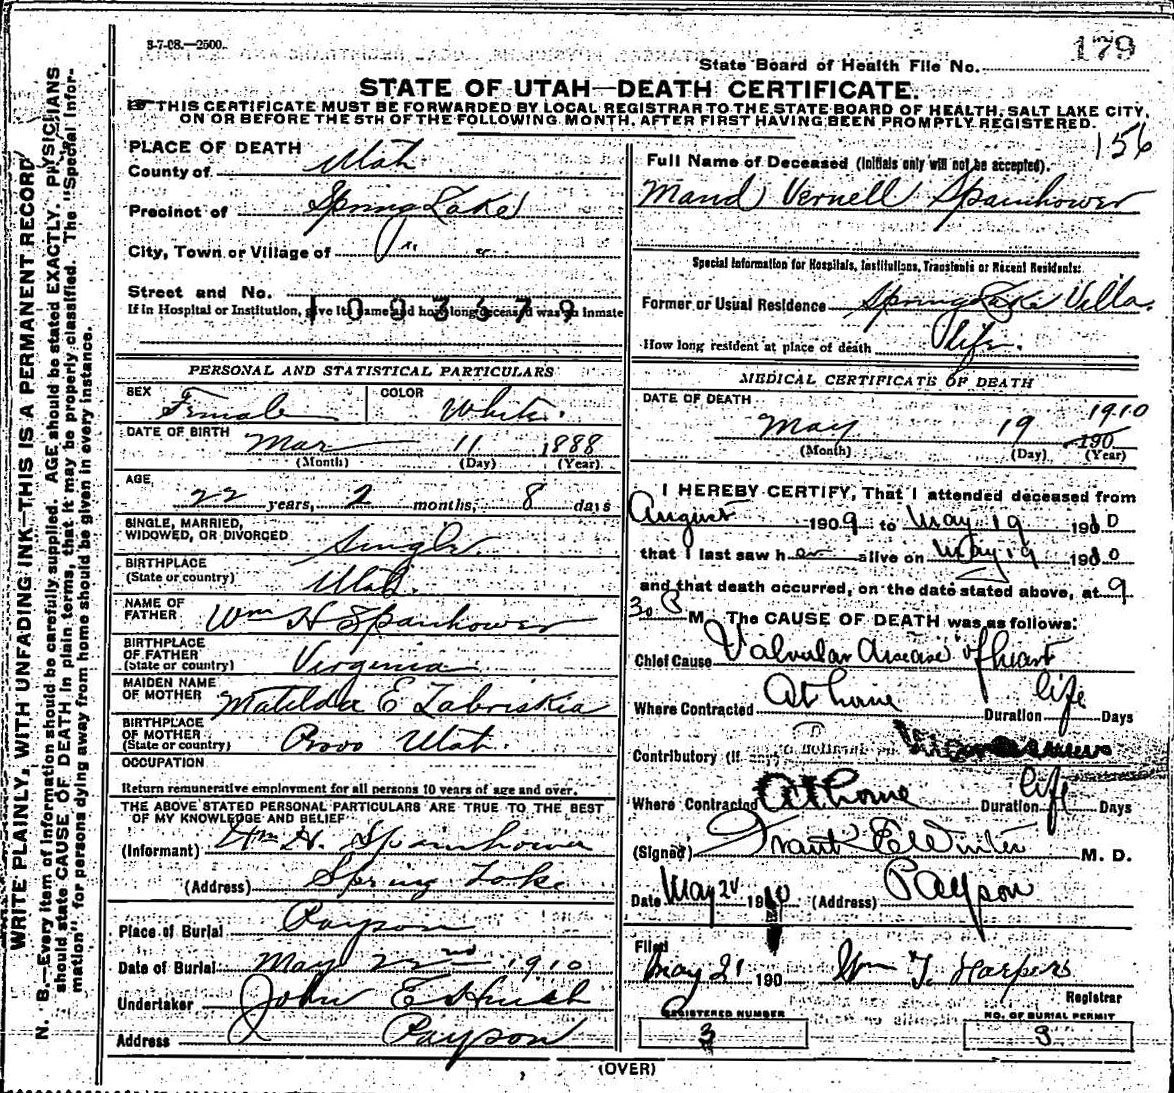 3-7-08.—2500.
179
State Board of Health File No.
STATE OF UTAH—DEATH CERTIFICATE.
THIS CERTIFICATE MUST BE FORWARDED BY LOCAL REGISTRAR TO THE STATE BOARD OF HEALTH, SALT LAKE CITY,
ON OR BEFORE THE 5TH OF THE FOLLOWING MONTH, AFTER FIRST HAVING BEEN PROMPTLY REGISTERED.
156
WRITE PLAINLY, WITH UNFADING INK—THIS IS A PERMANENT RECORD
N. B.—Every item of information should be carefully supplied. AGE should be stated EXACTLY. PHYSICIANS
should state CAUSE OF DEATH in plain terms, that it may be properly classified. The "Special Infor-
mation" for persons dying away from home should be given in every instance.
PLACE OF DEATH
County of Utah
Precinct of Spring Lake
City, Town or Village of " "
Street and No.
1003379
If in Hospital or Institution, give its name and how long deceased was an inmate
PERSONAL AND STATISTICAL PARTICULARS
SEX Female COLOR White.
DATE OF BIRTH Mar 11 1888
(Month) (Day) (Year)
AGE, 22 years, 2 months, 8 days
SINGLE, MARRIED,
WIDOWED, OR DIVORCED Single
BIRTHPLACE
(State or country) Utah.
NAME OF
FATHER Wm H Spainhower
BIRTHPLACE
OF FATHER
(State or country) Virginia
MAIDEN NAME
OF MOTHER Matilda E Zabriskia
BIRTHPLACE
OF MOTHER
(State or country) Provo Utah.
OCCUPATION
Return remunerative employment for all persons 10 years of age and over.
THE ABOVE STATED PERSONAL PARTICULARS ARE TRUE TO THE BEST
OF MY KNOWLEDGE AND BELIEF
(Informant) Wm H. Spainhower
(Address) Spring Lake
Place of Burial Payson
Date of Burial May 22nd 1910
Undertaker John E Huish
Address Payson
Full Name of Deceased (Initials only will not be accepted).
Maud Vernell Spainhower
Special Information for Hospitals, Institutions, Transients or Recent Residents:
Former or Usual Residence Spring Lake Villa.
How long resident at place of death life.
MEDICAL CERTIFICATE OF DEATH
DATE OF DEATH
May 19 1910
190
(Month) (Day) (Year)
I HEREBY CERTIFY, That I attended deceased from
August 1909 to May 19 1910
that I last saw her alive on May 19 1910
and that death occurred, on the date stated above, at 9
30 P M. The CAUSE OF DEATH was as follows:
Chief Cause Valvular disease of heart
Where Contracted At home Duration life Days
Contributory (If any)
Where Contracted At home Duration life Days
(Signed) Frank E Winter M. D.
Date May 20 1910 (Address) Payson
Filed
May 21 190 Wm T. Harper
Registrar
REGISTERED NUMBER
3
NO. OF BURIAL PERMIT
3
(OVER)